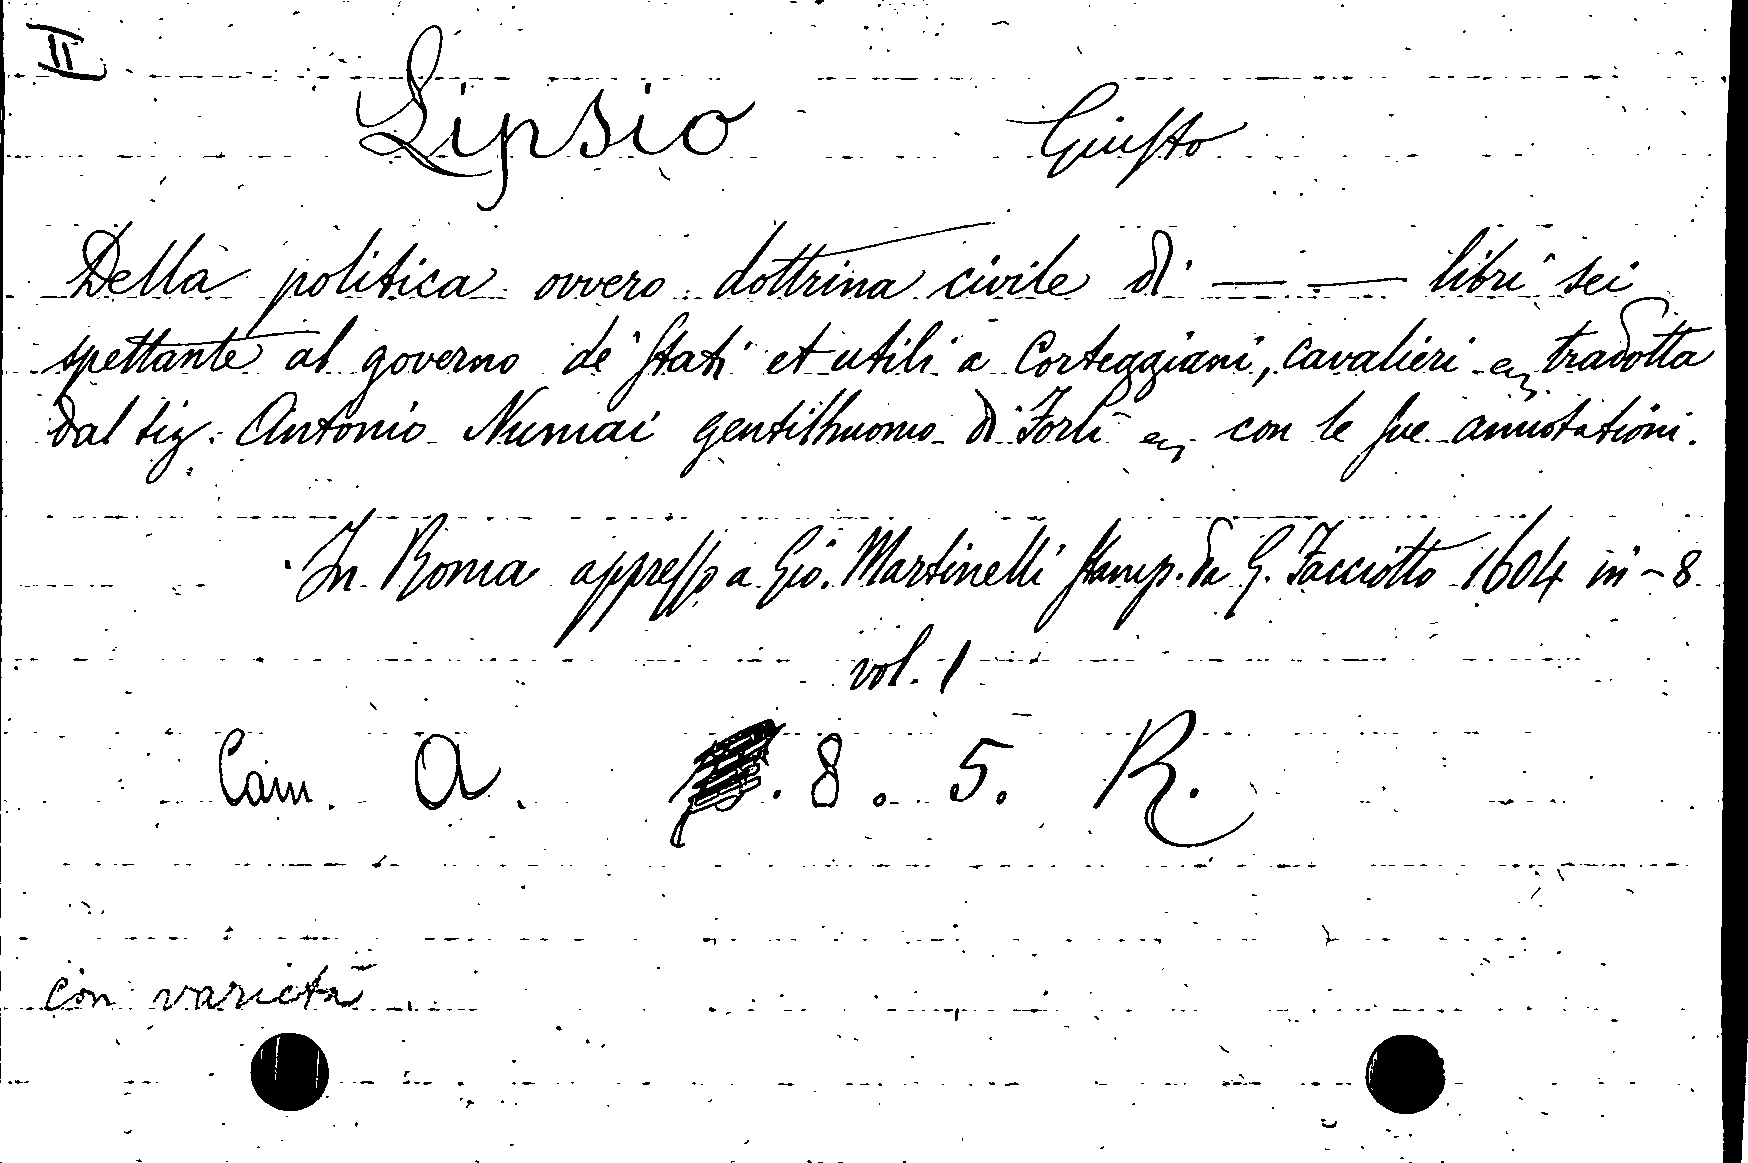 II
Lipsio Giusto
Della politica ovvero dottrina civile di — — libri sei
spettante al governo de' stati et utili a Corteggiani, cavalieri ecc tradotta
dal sig. Antonio Numai gentilhuomo di Forlì ecc con le sue annotationi.
In Roma appresso a Gio. Martinelli stamp. da G. Facciotto 1604 in-8
vol. 1
Cam. A. . 8. 5. R.
con varietà